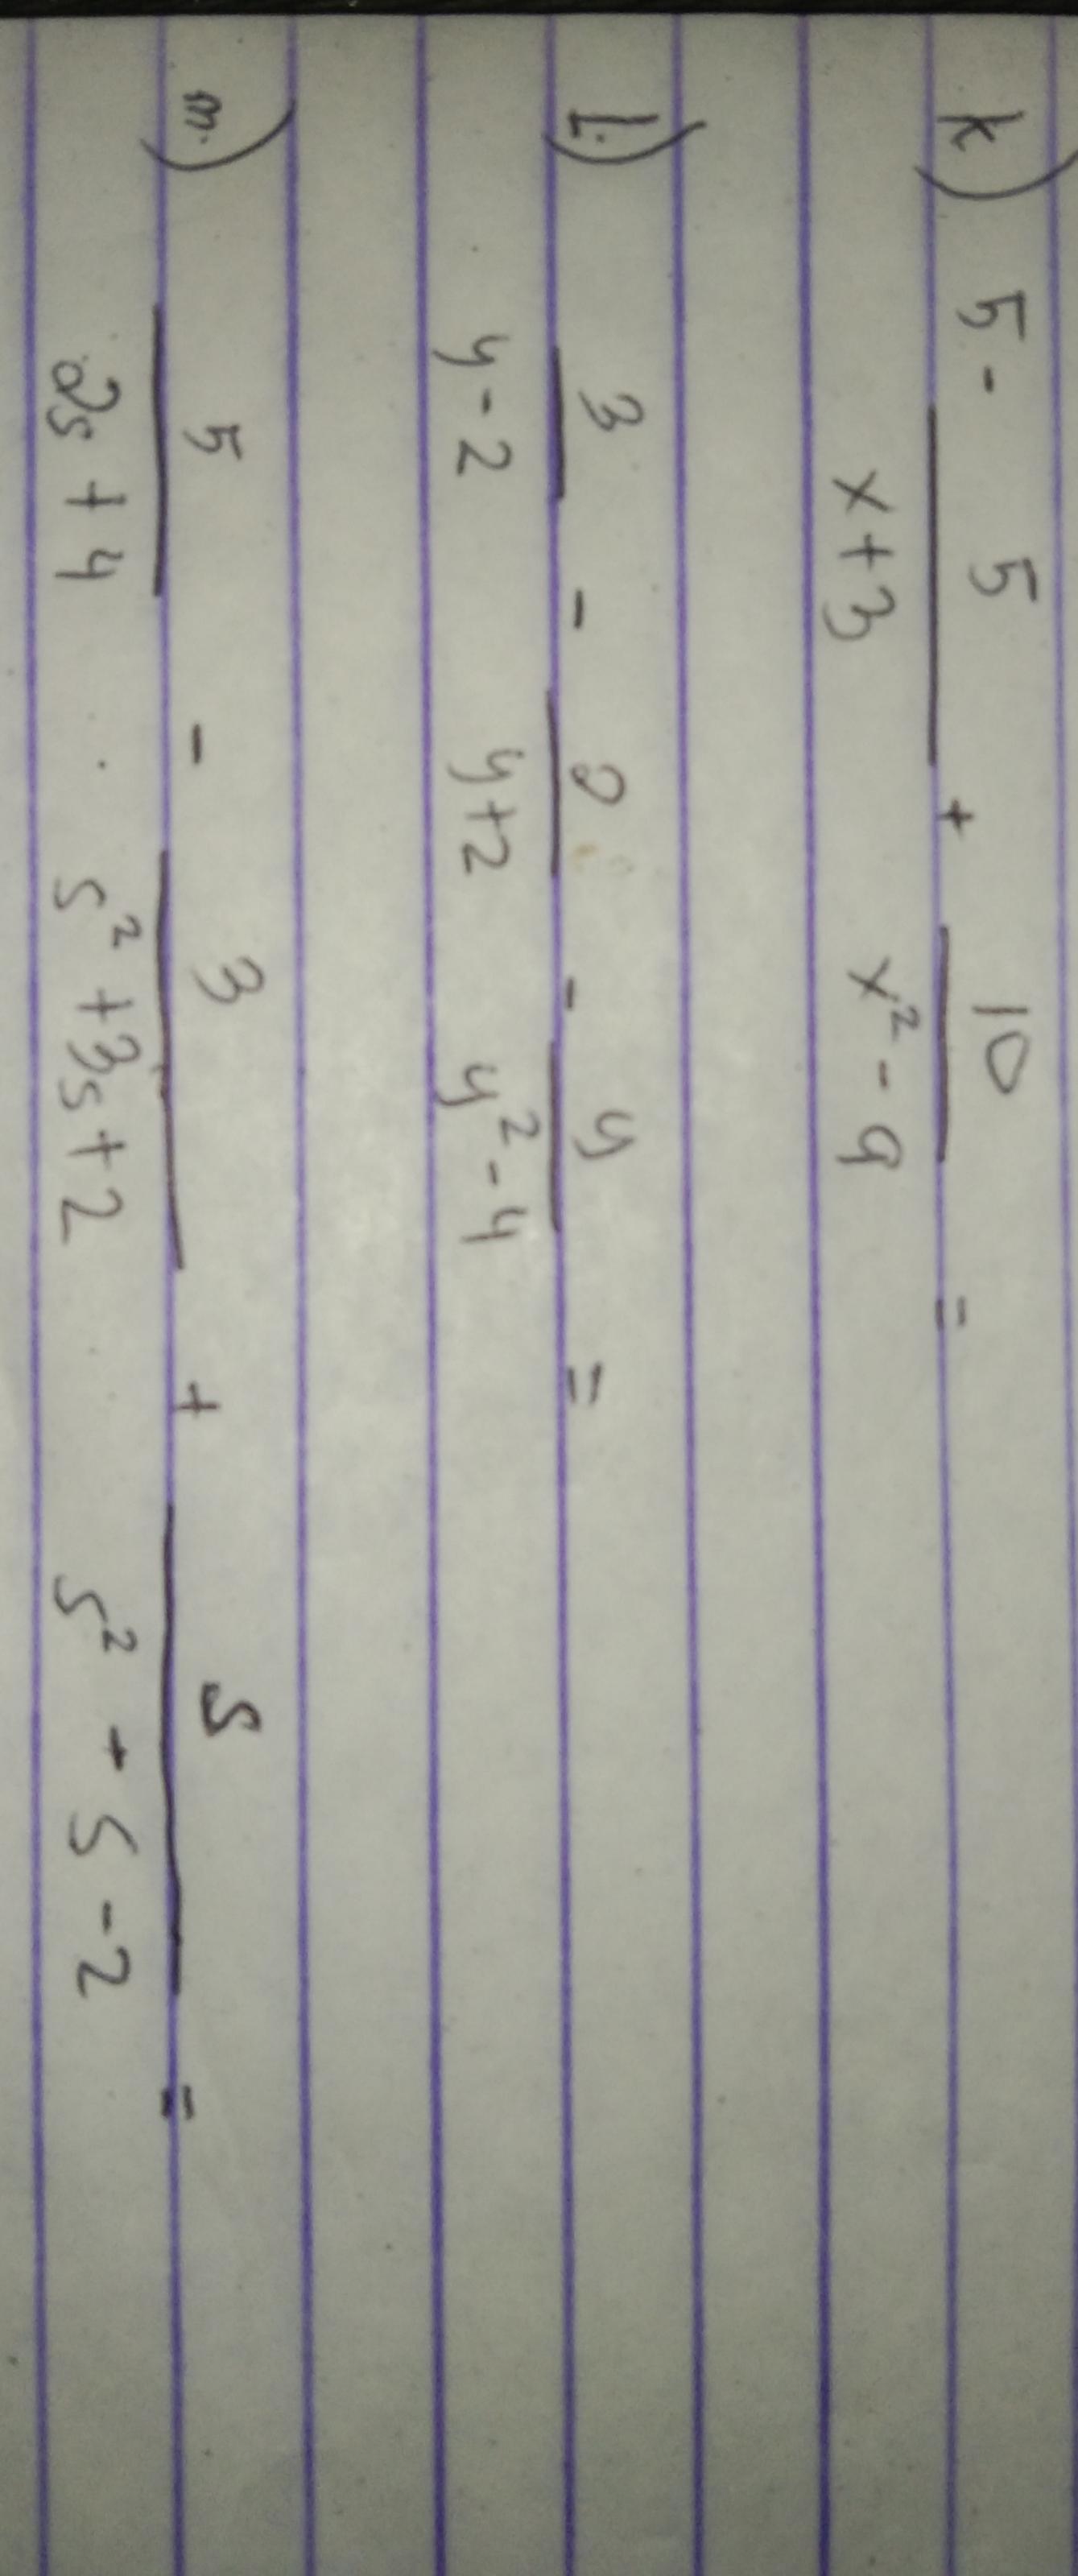 k) 5 - 5/(x+3) + 10/(x² - 9) =
l.) 3/(y-2) - 2/(y+2) - y/(y²-4) =
m.) 5/(2s+4) - 3/(s²+3s+2) + s/(s²+s-2) =